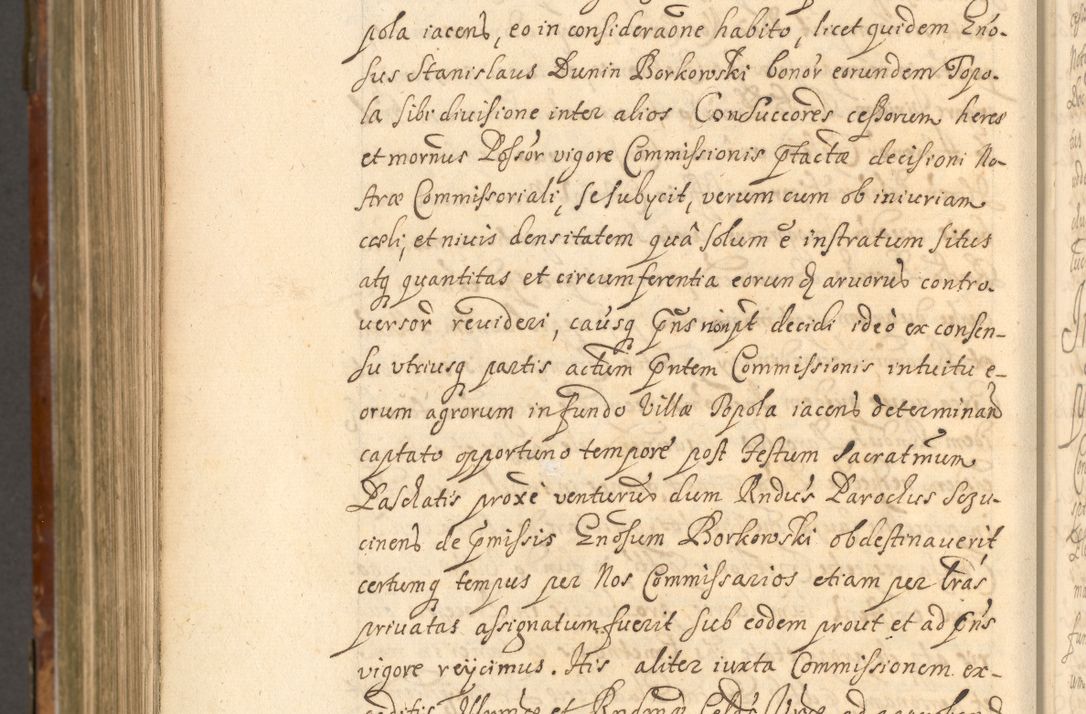 pola iacens, eo in consideraõne habito, licet quidem Eno-
sus Stanislaus Dunin Borkowski bonor̃ eorundem Topo-
la sibi diuisione inter alios Consuccores ceßorum heres
et mornus Possor vigore Commissionis ptactæ decisioni No-
stræ Commissoriali, se subycit, verum cum ob iniuriam
cæli, et niuis densitatem quâ solum e instratum situs
atq quantitas et circumferentia eorunq aruorus contro-
uersor̃ reuideri, causq pns nonpt decidi ideo ex consen-
su vtriusq partis actum pntem Commissionis intuitu e-
orum agrorum in fundo Villæ Topola iacens determinan
captato opportuno tempore post Festum Sacratmum
Paschatis proxe venturus dum Rndus Parochus Sczu-
cinens de pmissis Enosum Borkowski obdestinauerit
certumq tempus per Nos Commissarios etiam per lras
priuatas assignatum fuerit sub eodem prout et ad pns
vigore reycimus. Itis aliter iuxta Commissionem ex-